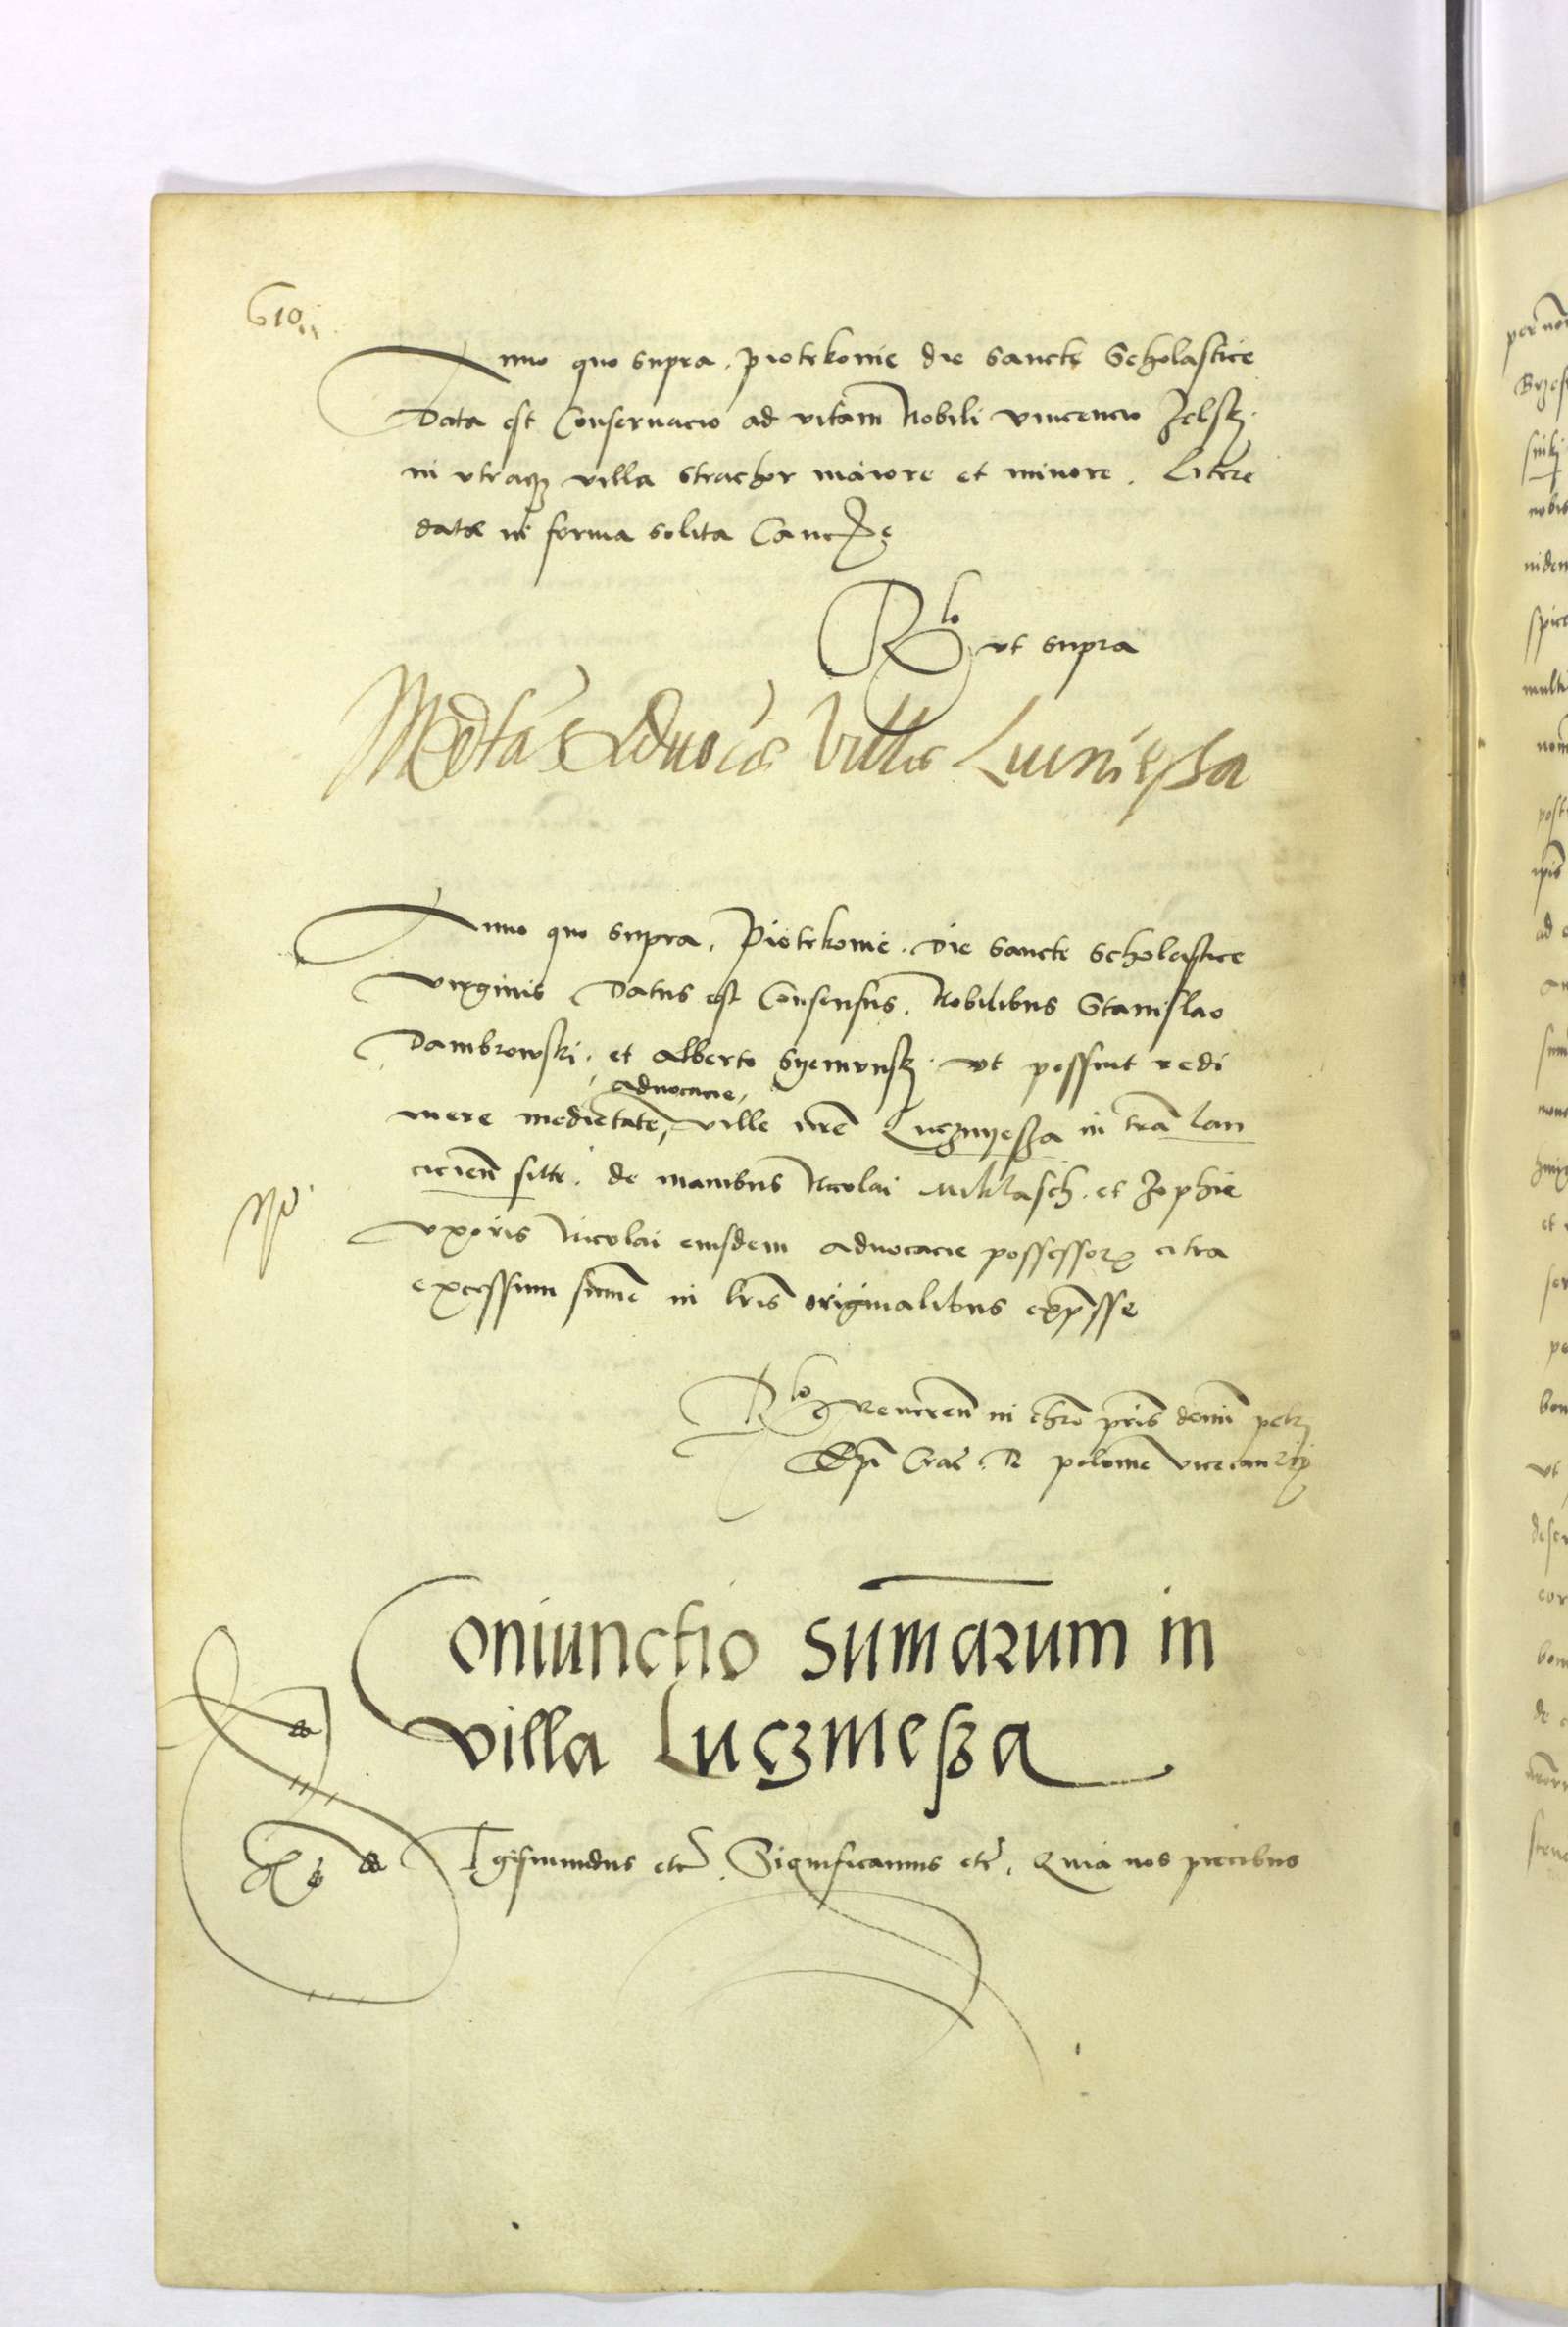 610
Anno quo supra. piotrkowie die sancte Scholastice
Data est Conseruacio ad vitam Nobili vincencio Jelskj.
in vtraqꝫ villa Strachor maiore et minore. Litere
date in forma solita Canc
Rlo vt supra
Medta Aduocie Ville Lucniessa
Anno quo supra. Piotrkowie. die sancte scholastice
virginis Datus est Consensus. Nobilibus Stanislao
Dambrowski. et Alberto Syemynskj. vt possint redi
aduocacie
mere medietatē, ville nrē Luczmyeßa in trā lan
cicieñ sitte. de manibus Nicolai Miklasch. et Zophie
vxoris Nicolai eiusdem aduocacie possessorꝝ citra
excessum sūme in lris originalibus exp̄sse
Rlo Reuereñ in chro pris domini petrj
Ep̄i Crac. R polonie vicecancrij
Coniunctio sum̄arum in
villa Luczmeßa
Sigismundus etc. Significamus etc. Quia nos precibus